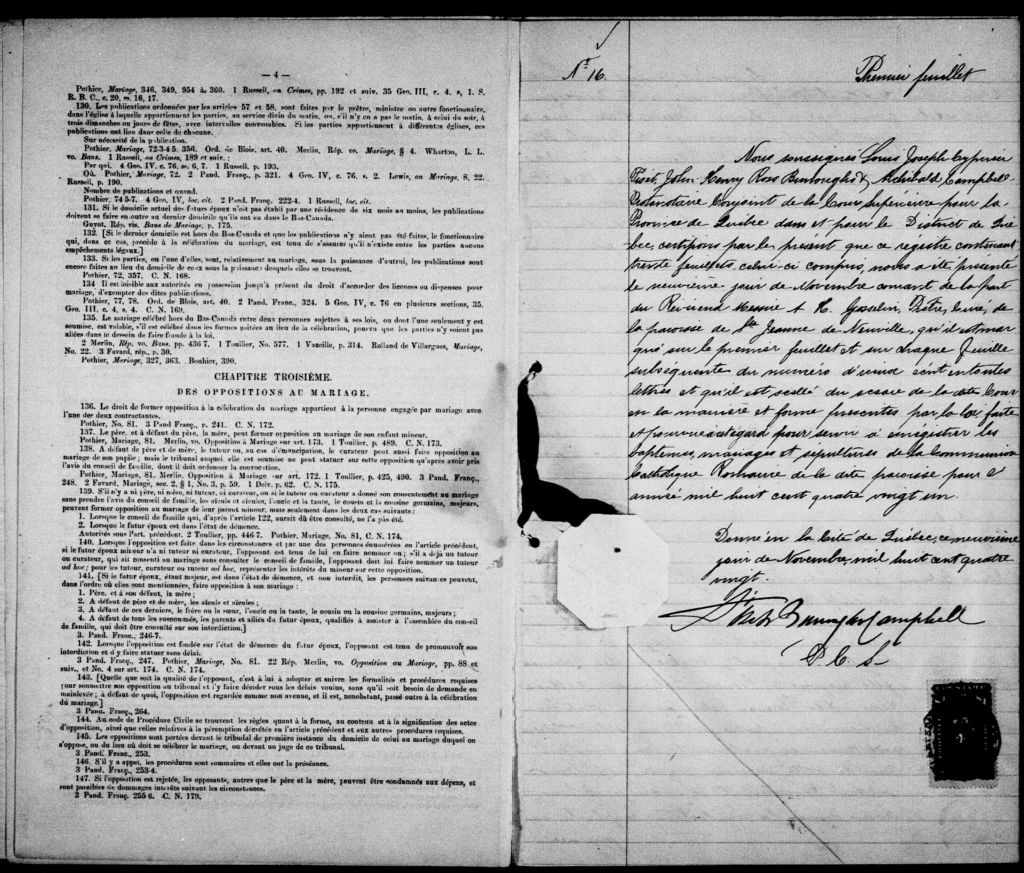 — 4 —
Pothier, Mariage, 346, 349, 954 à 360. 1 Russell, on Crimes, pp. 192 et suiv. 35 Geo. III, c. 4. s, 1. S.
R. B. C., c. 20, ss. 16, 17.
130. Les publications ordonnées par les articles 57 et 58, sont faites par le prêtre, ministre ou autre fonctionnaire,
dans l'église à laquelle appartiennent les parties, au service divin du matin, ou, s'il n'y en a pas le matin, à celui du soir, à
trois dimanches ou jours de fêtes, avec intervalles convenables. Si les parties appartiennent à différentes églises, ces
publications ont lieu dans celle de chacune.
Sur nécessité de la publication.
Pothier, Mariage, 72-3-4 5. 356. Ord. de Blois, art. 40. Merlin, Rép. vo. Mariage, § 4. Wharton, L. L.
vo. Bans. 1 Russell, on Crimes, 189 et suiv. :
Par qui. 4 Geo. IV, c. 76, ss. 6, 7. 1 Russell, p. 193.
Où. Pothier, Mariage, 72. 2 Pand. Franç., p. 321. 4 Geo. IV, c. 76, s. 2. Lewis, on Mariage, 8, 22.
Russell, p. 190.
Nombre de publications et quand.
Pothier, 74 5-7. 4 Geo. IV, loc. cit. 2 Pand. Franç. 222-4. 1 Russell, loc. cit.
131. Si le domicile actuel des futurs époux n'est pas établi par une résidence de six mois au moins, les publications
doivent se faire en outre au dernier domicile qu'ils ont eu dans le Bas-Canada.
Guyot, Rép. vis. Bans de Mariage, p. 175.
132. [Si le dernier domicile est hors du Bas-Canada et que les publications n'y aient pas été faites, le fonctionnaire
qui, dans ce cas, procède à la célébration du mariage, est tenu de s'assurer qu'il n'existe entre les parties aucuns
empêchements légaux.]
133. Si les parties, ou l'une d'elles, sont, relativement au mariage, sous la puissance d'autrui, les publications sont
encore faites au lieu du domicile de ceux sous la puissance desquels elles se trouvent.
Pothier, 72, 357. C. N. 168.
134 Il est loisible aux autorités en possession jusqu'à présent du droit d'accorder des licences ou dispenses pour
mariage, d'exempter des dites publications.
Pothier, 77, 78. Ord. de Blois, art. 40. 2 Pand. Franc., 324. 5 Geo. IV, c. 76 en plusieurs sections, 35,
Geo. III, c. 4, s. 4. C. N. 169.
135. Le mariage célébré hors du Bas-Canada entre deux personnes sujettes à ses lois, ou dont l'une seulement y est
soumise, est valable, s'il est célébré dans les formes usitées au lieu de la célébration, pourvu que les parties n'y soient pas
allées dans le dessein de faire fraude à la loi.
2 Merlin, Rép. vo. Bans, pp. 436 7. 1 Toullier, No. 577. 1 Vazeille, p. 314. Rolland de Villargues, Mariage,
No. 22. 3 Favard, rép., p. 30.
Pothier, Mariage, 327, 363. Bouhier, 390.
CHAPITRE TROISIÈME.
DES OPPOSITIONS AU MARIAGE.
136. Le droit de former opposition à la célébration du mariage appartient à la personne engagée par mariage avec
l'une des deux contractantes.
Pothier, No. 81. 3 Pand Franç., p. 241. C. N. 172.
137. Le père, et à défaut du père, la mère, peut former opposition au mariage de son enfant mineur.
Pothier, Mariage, 81. Merlin, vo. Opposition à Mariage sur art. 173. 1 Toullier, p. 489. C. N. 173.
138. A défaut de père et de mère, le tuteur ou, au cas d'émancipation, le curateur peut aussi faire opposition au
mariage de son pupille ; mais le tribunal auquel elle est soumise ne peut statuer sur cette opposition qu'après avoir pris
l'avis du conseil de famille, dont il doit ordonner la convocation.
Pothier, Mariage, 81. Merlin, Opposition à Mariage sur art. 172. 1 Toullier, p. 425, 490. 3 Pand. Franç.,
248. 2 Favard, Mariage, sec. 2. § 1, No. 3, p. 59. 1 Delv, p. 62. C. N. 175.
139. S'il n'y a ni père, ni mère, ni tuteur, ni curateur, ou si le tuteur ou curateur a donné son consentement au mariage
sans prendre l'avis du conseil de famille, les aïeuls et aïeules, l'oncle et la tante, le cousin et la cousine germains, majeurs,
peuvent former opposition au mariage de leur parent mineur, mais seulement dans les deux cas suivants :
1. Lorsque le conseil de famille qui, d'après l'article 122, aurait dû être consulté, ne l'a pas été.
2. Lorsque le futur époux est dans l'état de démence.
Autorités sous Part. précédent. 2 Toullier, pp. 446 7. Pothier, Mariage, No. 81, C. N. 174.
140. Lorsque l'opposition est faite dans les circonstances et par une des personnes énumérées en l'article précédent,
si le futur époux mineur n'a ni tuteur ni curateur, l'opposant est tenu de lui en faire nommer un ; s'il a déjà un tuteur
ou curateur, qui ait consenti au mariage sans consulter le conseil de famille, l'opposant doit lui faire nommer un tuteur
ad hoc ; pour les tuteur, curateur ou tuteur ad hoc, représenter les intérêts du mineur sur cette opposition.
141. [Si le futur époux, étant majeur, est dans l'état de démence, et non interdit, les personnes suivantes peuvent,
dans l'ordre où elles sont mentionnées, faire opposition à son mariage :
1. Père, et à son défaut, la mère ;
2. A défaut de père et de mère, les aïeuls et aïeules ;
3. A défaut de ces derniers, le frère ou la sœur, l'oncle ou la tante, le cousin ou la cousine germains, majeurs ;
4. A défaut de tous les susnommés, les parents et alliés du futur époux, qualifiés à assister à l'assemblée du conseil
de famille, qui doit être consulté sur son interdiction.]
3. Pand. Franç., 246-7.
142. Lorsque l'opposition est fondée sur l'état de démence du futur époux, l'opposant est tenu de promouvoir son
interdiction et d'y faire statuer sans délai.
3 Pand. Franç., 247. Pothier, Mariage, No. 81. 22 Rép. Merlin, vo. Opposition au Mariage, pp. 88 et
suiv., et No. 4 sur art. 174. C. N. 174.
143. [Quelle que soit la qualité de l'opposant, c'est à lui à adopter et suivre les formalités et procédures requises
pour soumettre son opposition au tribunal et l'y faire décider sous les délais voulus, sans qu'il soit besoin de demande en
mainlevée ; à défaut de quoi, l'opposition est regardée comme non avenue, et il est, nonobstant, passé outre à la célébration
du mariage.]
3 Pand. Franç., 264.
144. Au code de Procédure Civile se trouvent les règles quant à la forme, au contenu et à la signification des actes
d'opposition, ainsi que celles relatives à la péremption décrétée en l'article précédent et aux autres procédures requises.
145. Les oppositions sont portées devant le tribunal de première instance du domicile de celui au mariage duquel on
s'oppose, ou du lieu où doit se célébrer le mariage, ou devant un juge de ce tribunal.
3 Pand. Franc., 253.
146. S'il y a appel, les procédures sont sommaires et elles ont la préséance.
3 Pand. Franç., 253-4.
147. Si l'opposition est rejetée, les opposants, autres que le père et la mère, peuvent être condamnés aux dépens, et
sont passibles de dommages intérêts suivant les circonstances.
3 Pand. Franç. 255 6. C. N. 179.
No. 16.
Premier feuillet
Nous soussignés Louis Joseph Cyprien
Fiset, John Henry Ross Burroughs & Archibald Campbell
Protonotaire Conjoint de la Cour Supérieure pour la
Province de Québec dans et pour le District de Qué
bec, certifions par le présent que ce registre contenant
trente feuillets celui-ci compris, nous a été présenté
le neuvième jour de Novembre courant de la part
du Révérend Messire A H. Gosselin, Prêtre, Curé, de
la paroisse de Ste Jeanne de Neuville, qu'il est mar
qué sur le premier feuillet et sur chaque feuille
subséquente du numéro d'iceux écrit en toutes
lettres et qu'il est scellé du sceau de la dite Cour
en la manière et forme prescrites par la loi faite
et pourvue à cet égard pour servir à enrégistrer les
baptêmes, mariages et sépultures de la Communion
Catholique Romaine de la dite paroisse pour l'
année mil huit cent quatre vingt un.
Donné en la Cité de Québec, ce neuvième
jour de Novembre, mil huit cent quatre
vingt.
Fiset Burroughs Campbell
P. C. S.